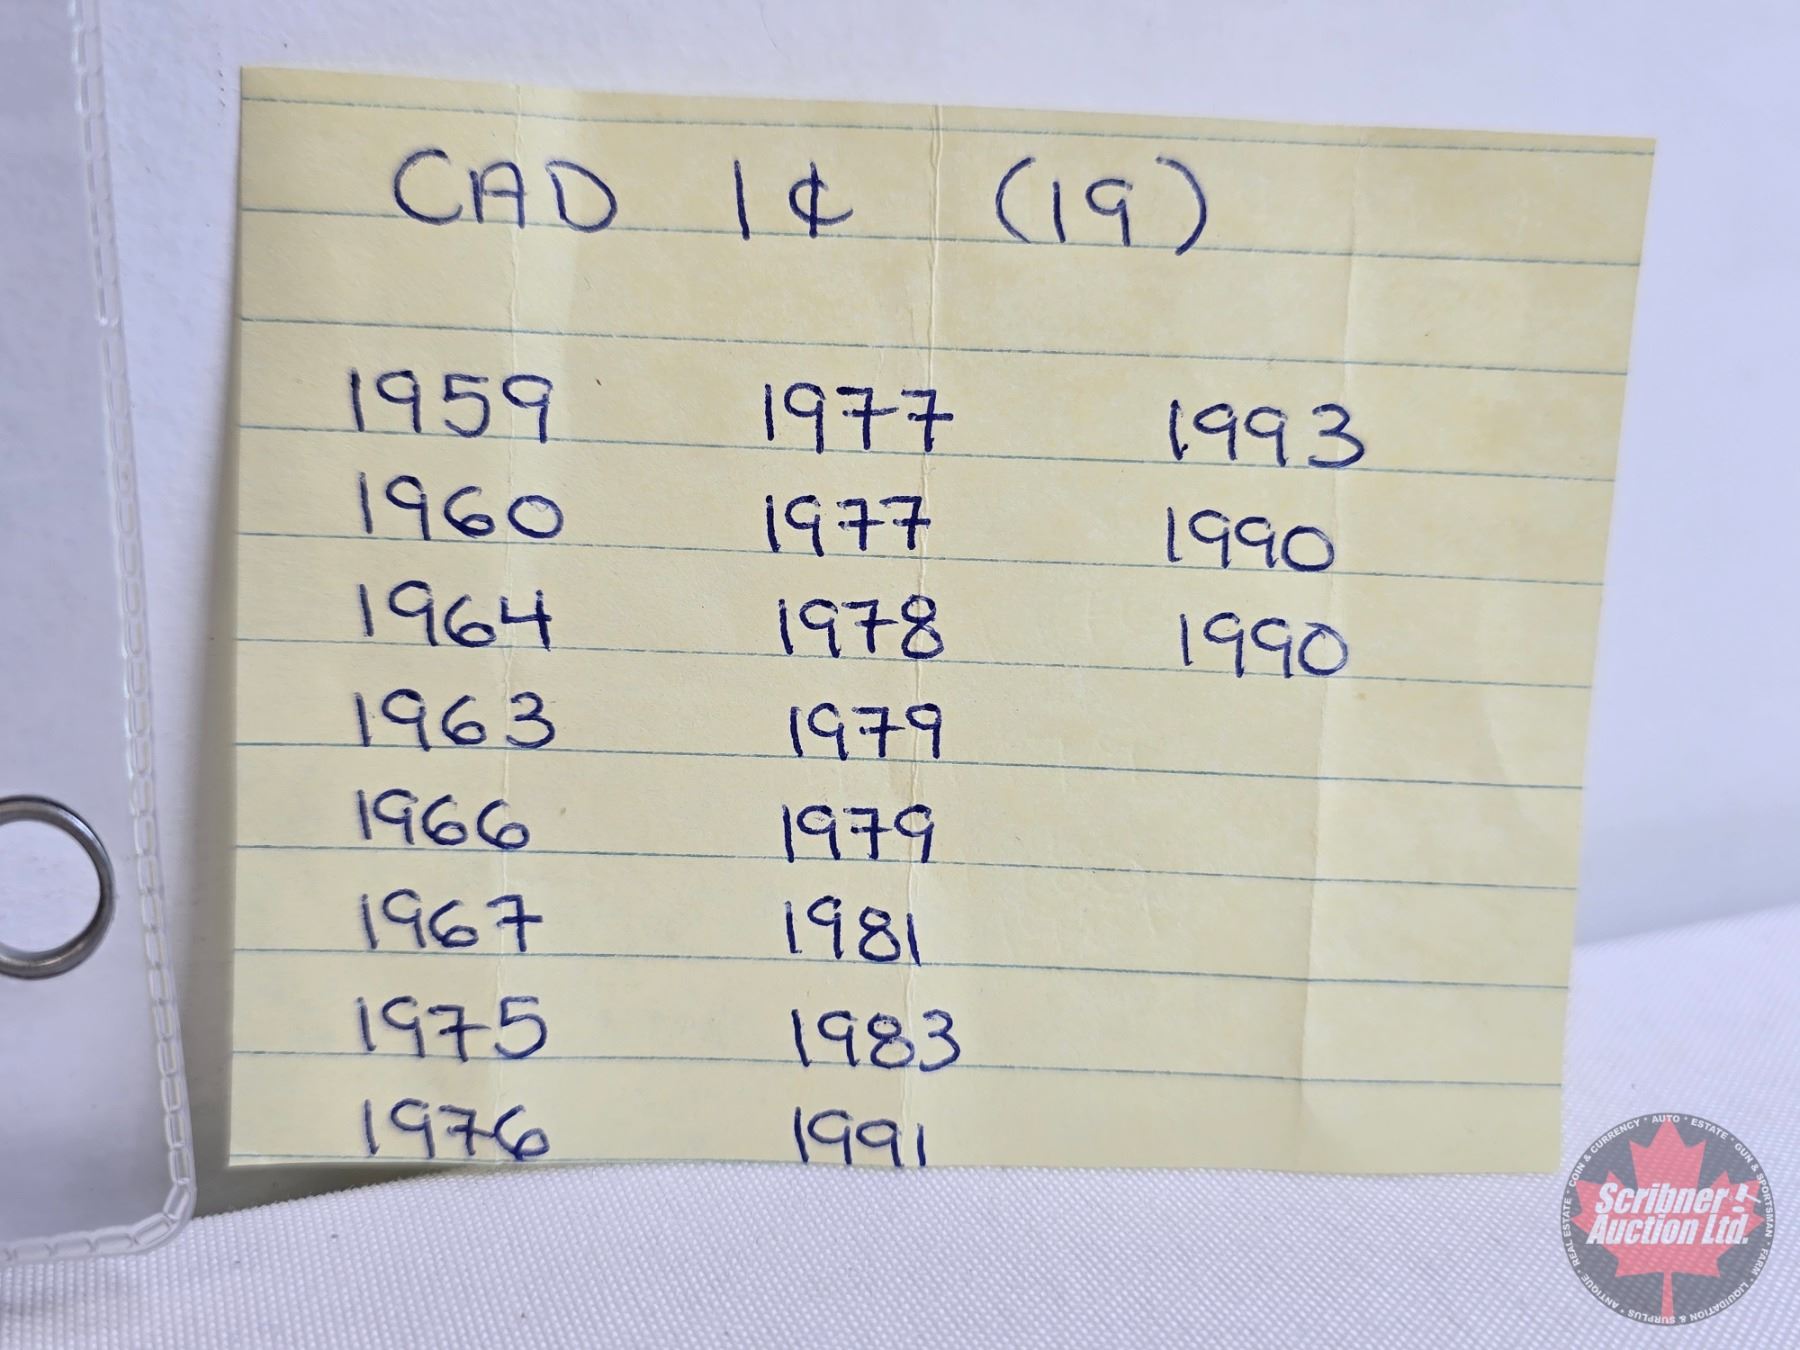 CAD 1¢ (19)
1959 1977 1993
1960 1977 1990
1964 1978 1990
1963 1979
1966 1979
1967 1981
1975 1983
1976 1991
Scribner
Auction Ltd.
COIN & CURRENCY · AUTO · ESTATE · GUN & SPORTSMAN · FARM · LIQUIDATION & SURPLUS · ANTIQUE · REAL ESTATE